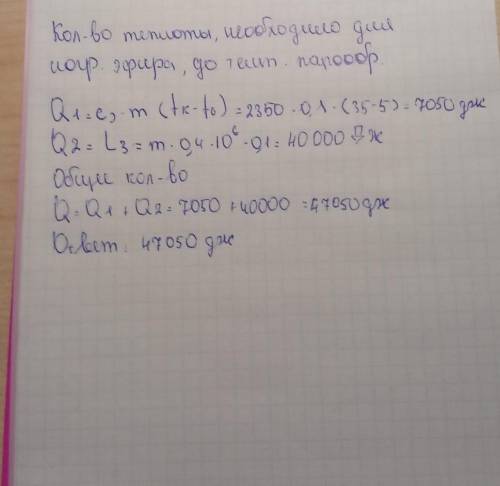 Кол-во теплоты, необходимо для
погр. эфира, до темп. парообр.
Q1 = cэ·m (tк-t0) = 2350·0,1·(35-5) = 7050 дж
Q2 = Lэ = m·0,4·10⁶·0,1 = 40000 Дж
Общее кол-во
Q = Q1 + Q2 = 7050 + 40000 = 47050 дж
Ответ: 47050 дж